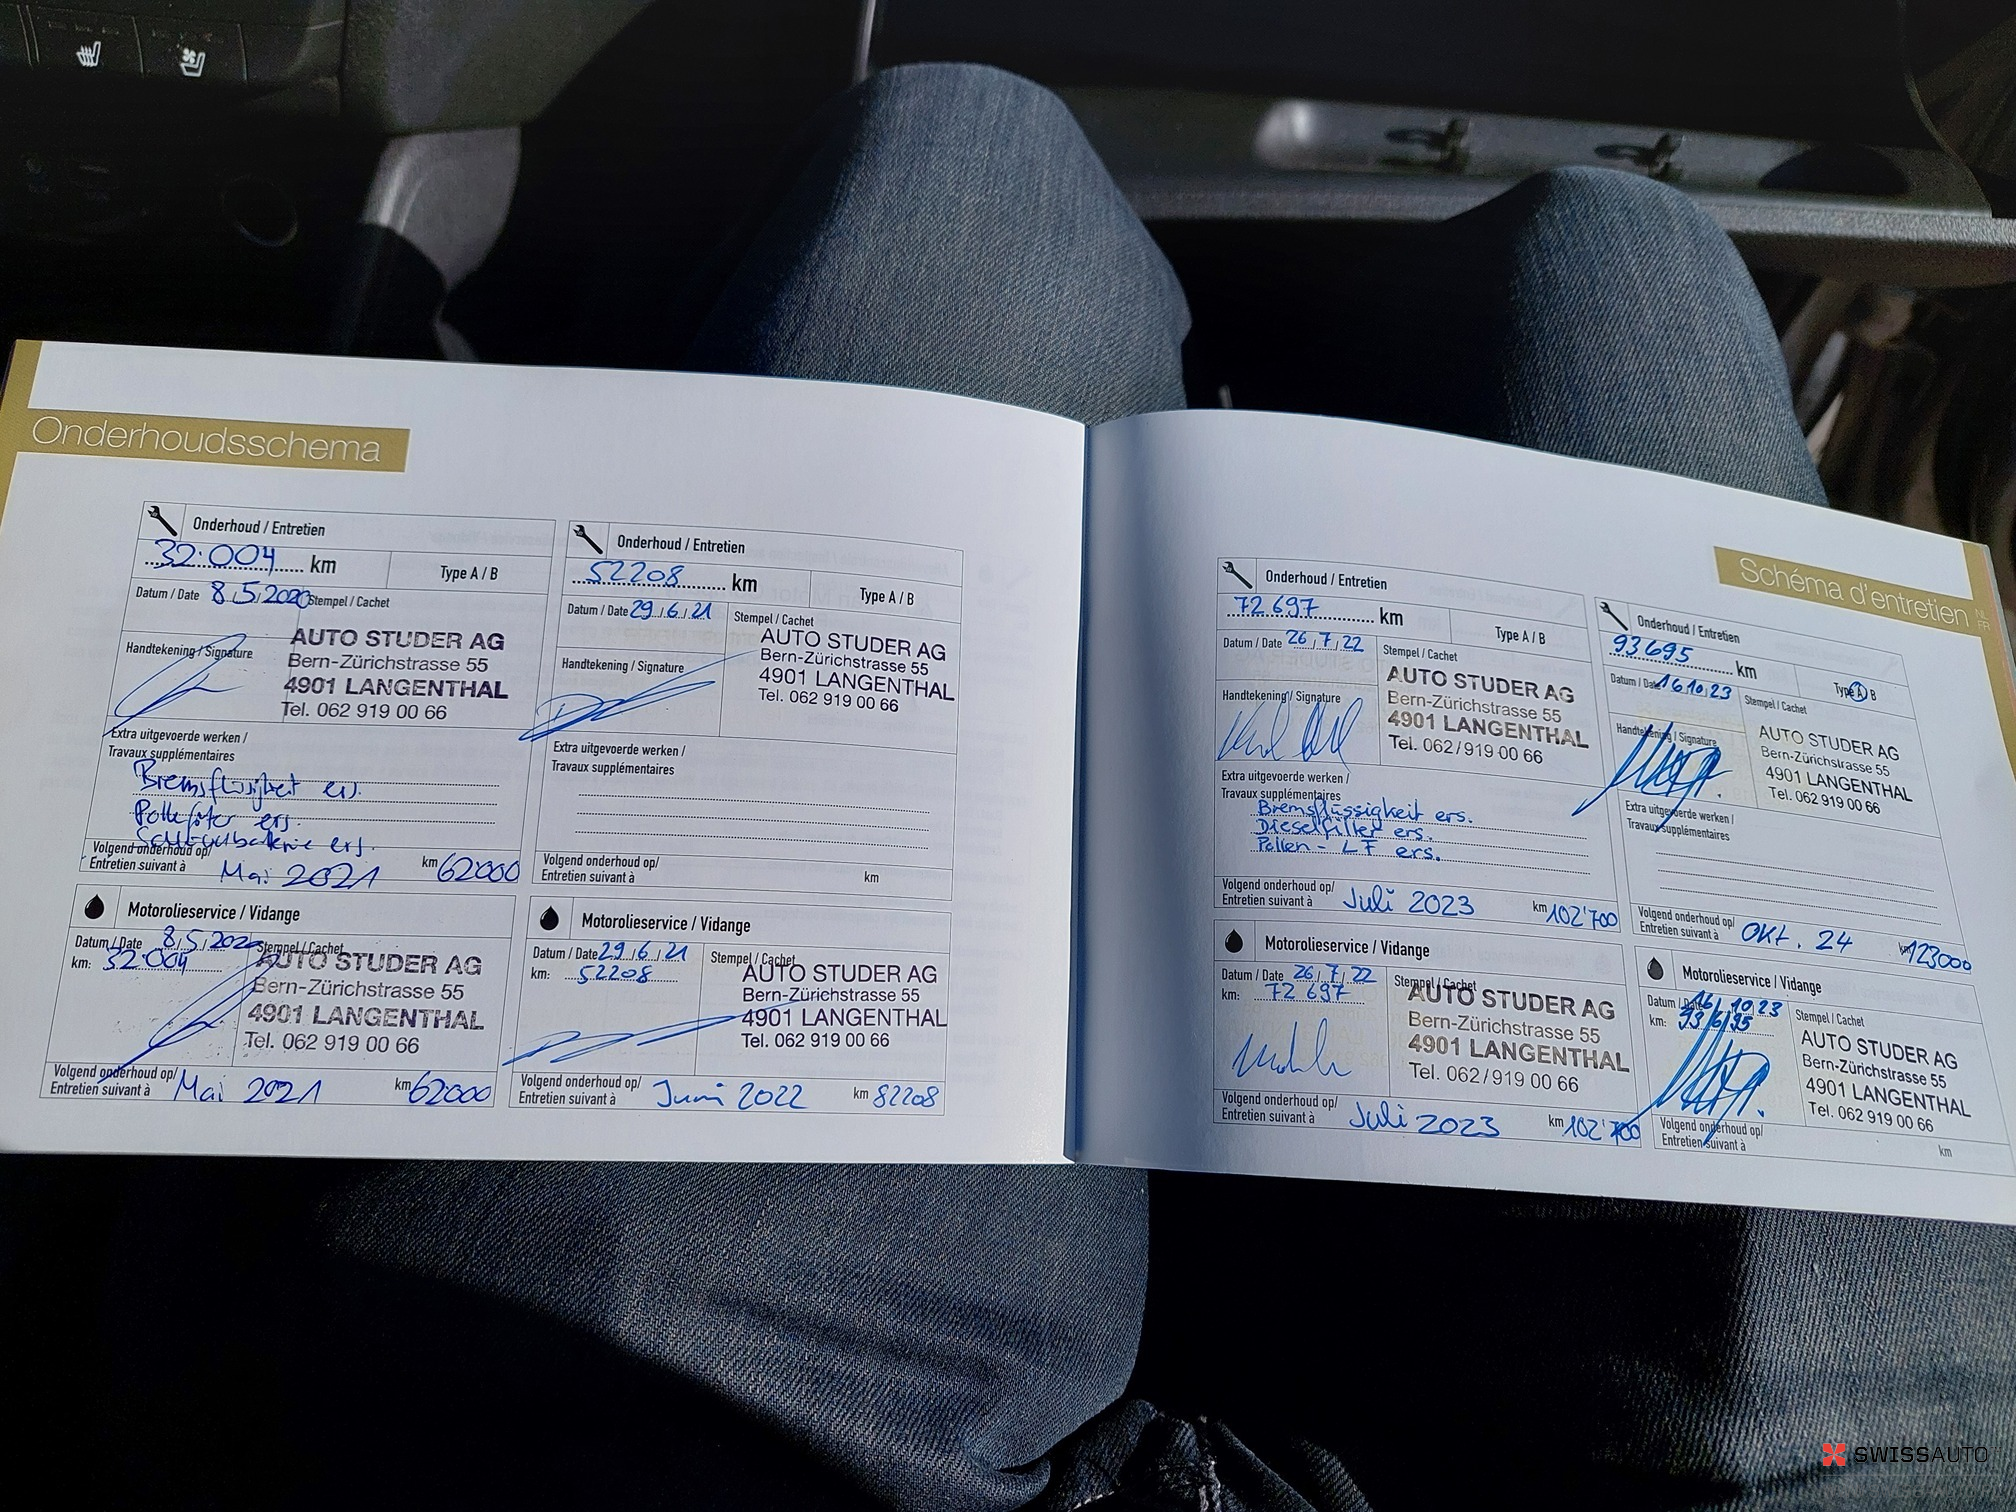 Onderhoudsschema
Onderhoud / Entretien
32.004 km
Type A / B
Datum / Date 8.5.2020
Stempel / Cachet
Handtekening / Signature
AUTO STUDER AG
Bern-Zürichstrasse 55
4901 LANGENTHAL
Tel. 062 919 00 66
Extra uitgevoerde werken /
Travaux supplémentaires
Bremsflüssigkeit ers.
ers.
ers.
Volgend onderhoud op/
Entretien suivant à Mai 2021 km 62000
Motorolieservice / Vidange
Datum / Date 8.5.2020
Stempel / Cachet
km: 32.004
AUTO STUDER AG
Bern-Zürichstrasse 55
4901 LANGENTHAL
Tel. 062 919 00 66
Volgend onderhoud op/
Entretien suivant à Mai 2021 km 62000
Onderhoud / Entretien
52208 km
Type A / B
Datum / Date 29.6.21
Stempel / Cachet
Handtekening / Signature
AUTO STUDER AG
Bern-Zürichstrasse 55
4901 LANGENTHAL
Tel. 062 919 00 66
Extra uitgevoerde werken /
Travaux supplémentaires
Volgend onderhoud op/
Entretien suivant à km
Motorolieservice / Vidange
Datum / Date 29.6.21
Stempel / Cachet
km: 52208
AUTO STUDER AG
Bern-Zürichstrasse 55
4901 LANGENTHAL
Tel. 062 919 00 66
Volgend onderhoud op/
Entretien suivant à Juni 2022 km 82208
Schéma d'entretien
NL
FR
Onderhoud / Entretien
72 697 km
Type A / B
Datum / Date 26.7.22
Stempel / Cachet
Handtekening / Signature
AUTO STUDER AG
Bern-Zürichstrasse 55
4901 LANGENTHAL
Tel. 062/919 00 66
Extra uitgevoerde werken /
Travaux supplémentaires
Bremsflüssigkeit ers.
Dieselfilter ers.
Pollen - LF ers.
Volgend onderhoud op/
Entretien suivant à Juli 2023 km 102'700
Motorolieservice / Vidange
Datum / Date 26.7.22
Stempel / Cachet
km: 72 697
AUTO STUDER AG
Bern-Zürichstrasse 55
4901 LANGENTHAL
Tel. 062/919 00 66
Volgend onderhoud op/
Entretien suivant à Juli 2023 km 102'700
Onderhoud / Entretien
93695 km
Type A / B
Datum / Date 16.10.23
Stempel / Cachet
Handtekening / Signature
AUTO STUDER AG
Bern-Zürichstrasse 55
4901 LANGENTHAL
Tel. 062 919 00 66
Extra uitgevoerde werken /
Travaux supplémentaires
Volgend onderhoud op/
Entretien suivant à Okt. 24 km 123000
Motorolieservice / Vidange
Datum / Date 16/10 23
Stempel / Cachet
km: 93695
AUTO STUDER AG
Bern-Zürichstrasse 55
4901 LANGENTHAL
Tel. 062 919 00 66
Volgend onderhoud op/
Entretien suivant à km
SWISSAUTO